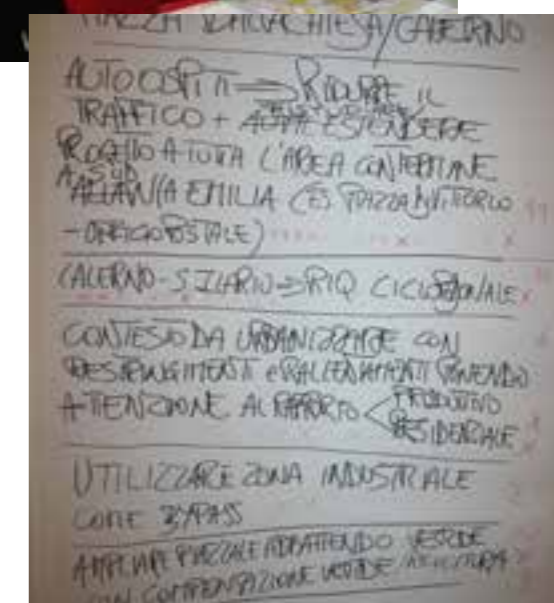 PIAZZA DALLA CHIESA/CALERNO
RIDURRE IL
TRAFFICO + ESTENDERE
PROGETTO A TUTTA L'AREA CONTERMINE
A SUD
ALLA VIA EMILIA (ES PIAZZA VITTORIO
- UFFICIO POSTALE)
CALERNO-S ILARIO ⇒ RIQ CICLOPEDONALE
CONTESTO DA URBANIZZARE CON
RESTRINGIMENTI e RALLENTAMENTI PONENDO
ATTENZIONE AL RAPPORTO < PRODUTTIVO
RESIDENZIALE
UTILIZZARE ZONA INDUSTRIALE
COME BYPASS
AMPLIARE PIAZZALE VERDE
CON COMPENSAZIONE VERDE